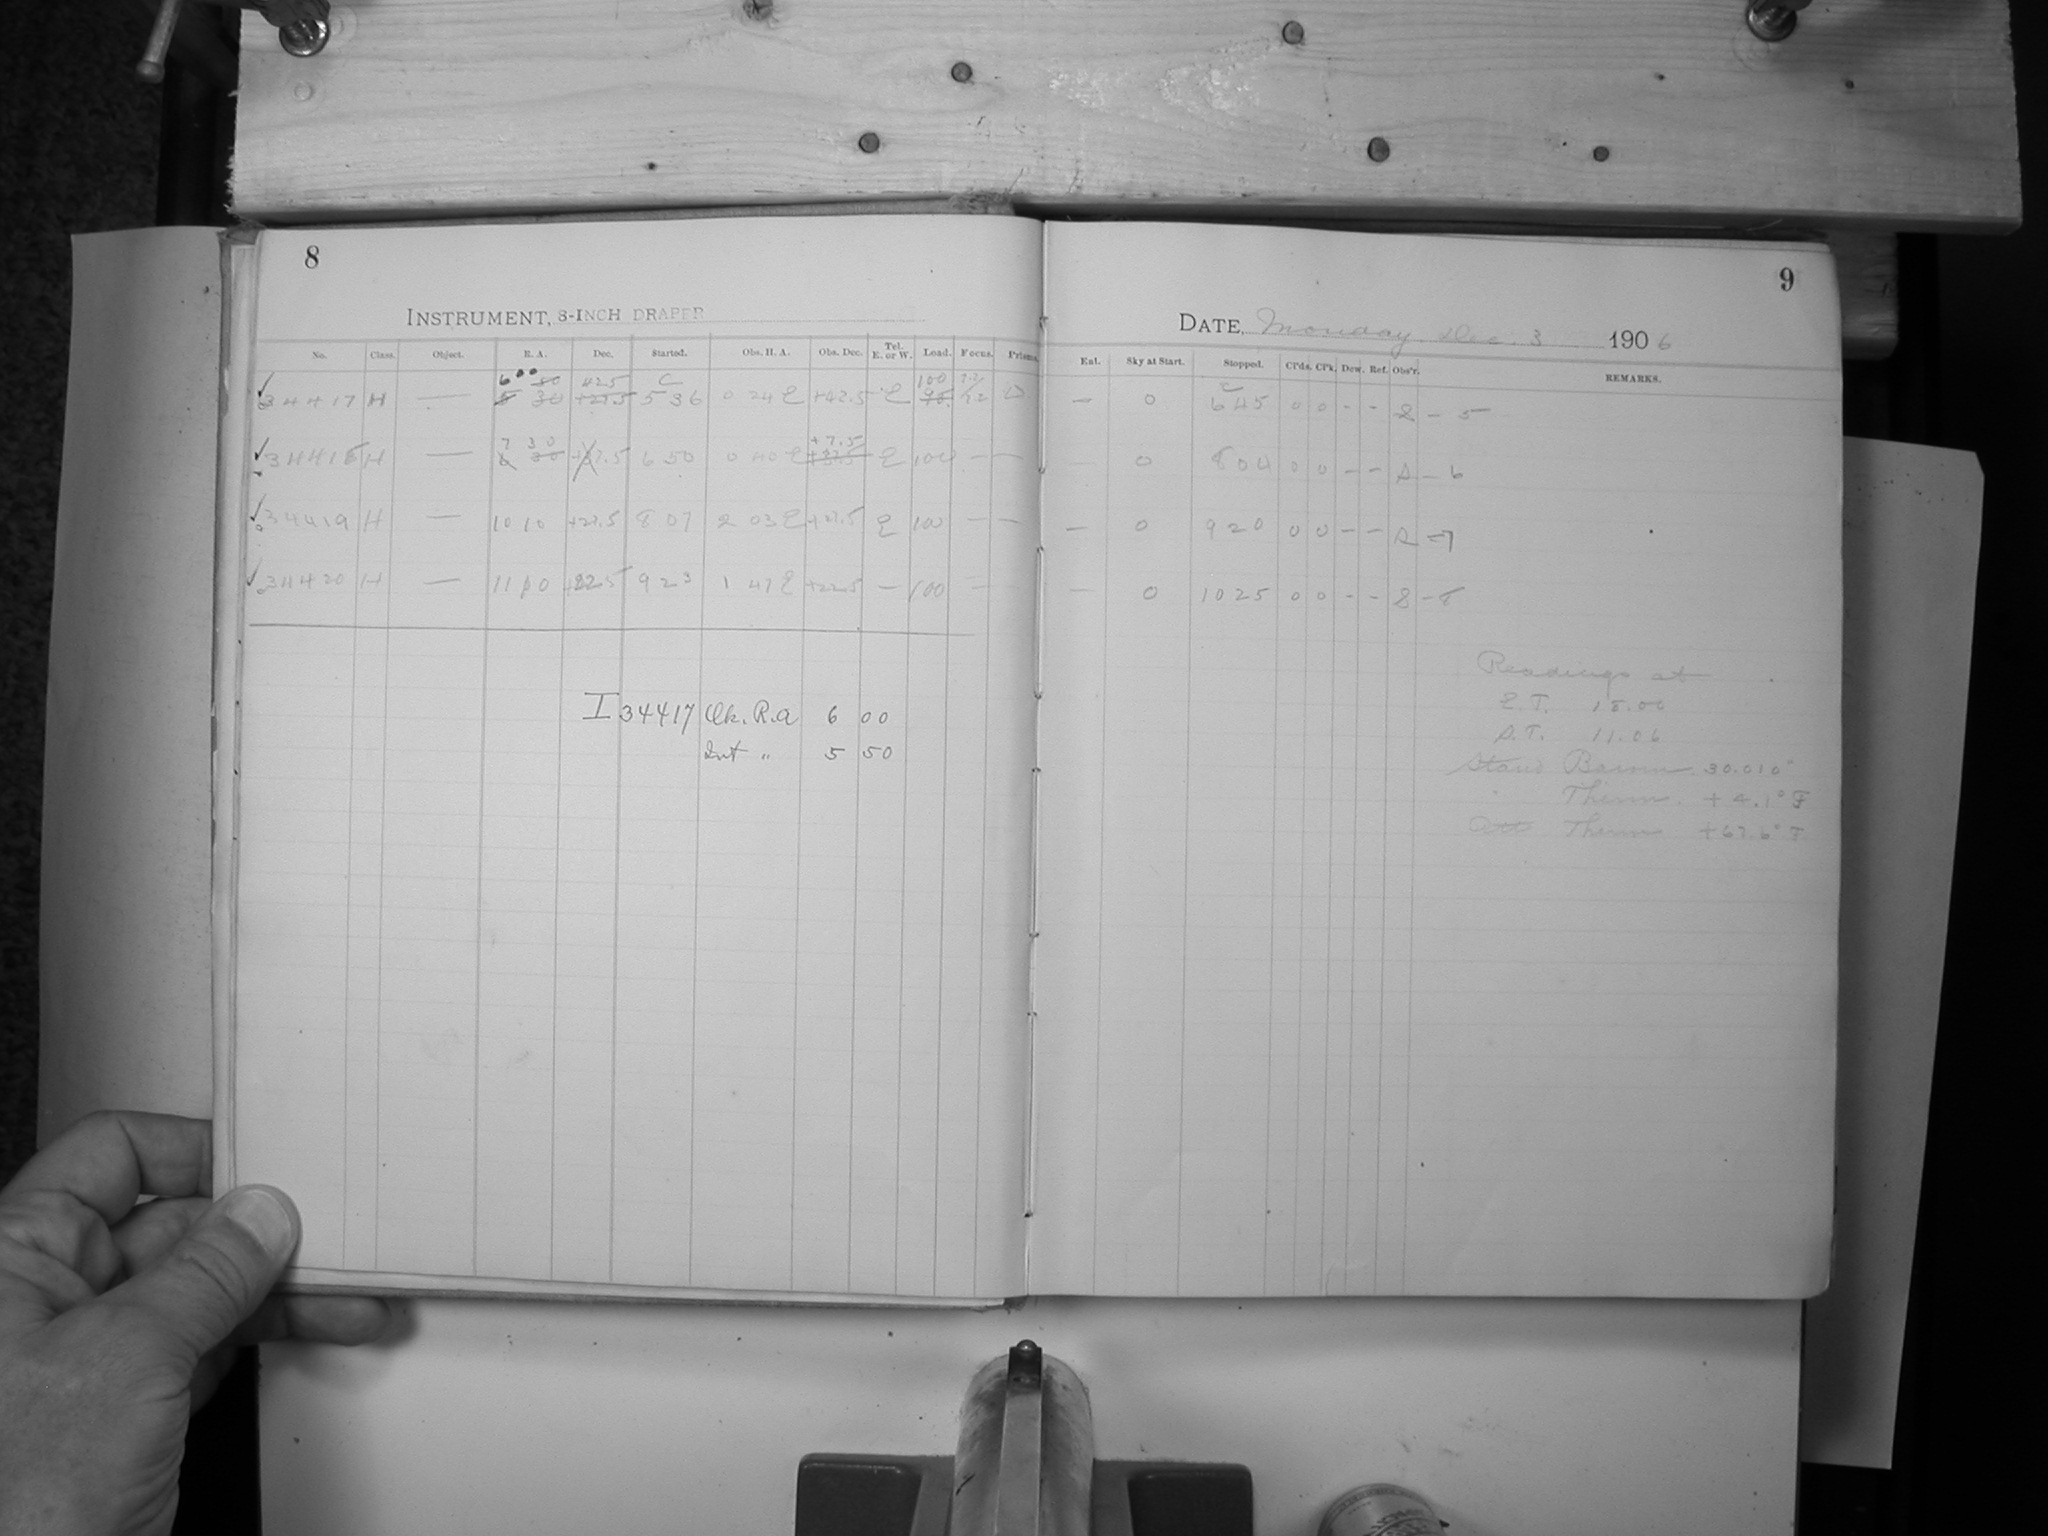 8
INSTRUMENT, 8-INCH DRAPER
No. Class. Object. R. A. Dec. Started. Obs. H. A. Obs. Dec. Tel. E. or W. Load. Focus. Prisms.
6 00 50 425 C 100
34417 H — 5 30 +27.5 5 36 0 24 E +42.5 E
7 30 +7.5
34418 H — 6 30 6 50 0 40 E E 100 — —
34419 H — 10 10 +27.5 8 07 2 03 E +27.5 E 100 — —
34420 H — 11 10 +22.5 9 23 1 47 E +22.5 — 100 —
I 34417 Ck. R.A 6 00
Int " 5 50
9
DATE, Monday Dec. 3 1906
Ent. Sky at Start. Stopped. CPds. CPk. Dew. Ref. Obs'r. REMARKS.
C
— 0 6 45 0 0 - - S - 5
0 8 04 0 0 - - S - 6
— 0 9 20 0 0 - - S - 7
— 0 10 25 0 0 - - S - 8
Readings at
E.T. 18.06
S.T. 11.06
Stand Barom. 30.010"
" Therm. + 4.1° F
Att Therm +67.6° F